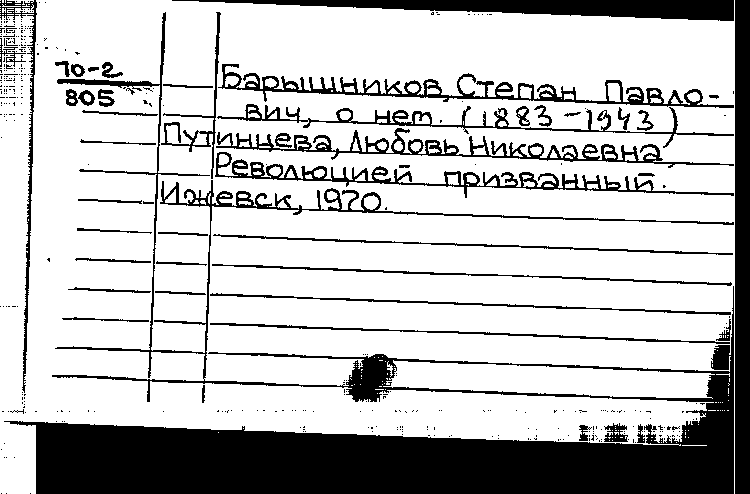 70-2
805
Барышников, Степан Павло-
вич, о нем. (1883-1943)
Путинцева, Любовь Николаевна
Революцией призванный.
Ижевск, 1970.